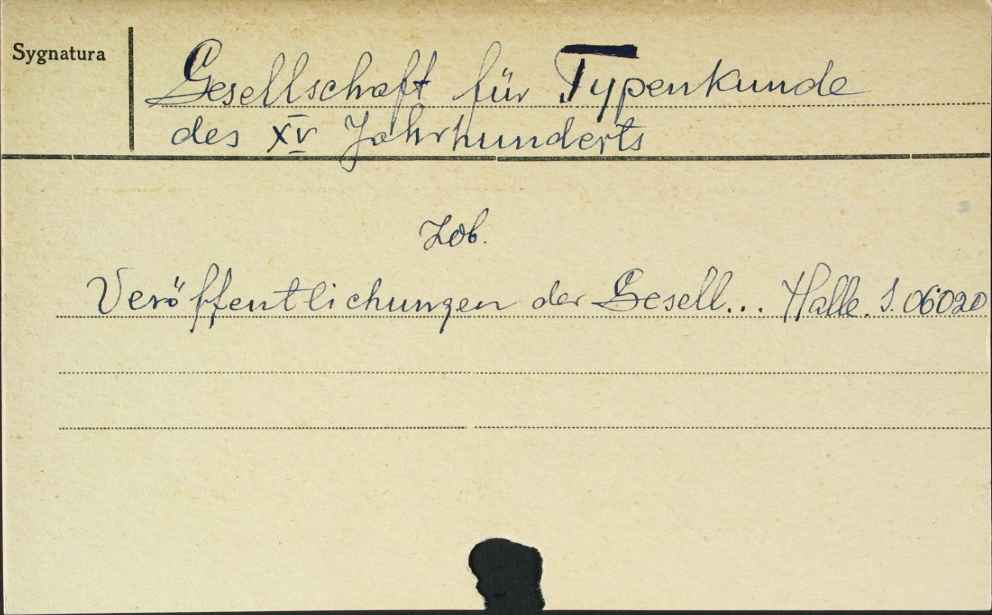 Sygnatura
Gesellschaft für Typenkunde
des XV Jahrhunderts
Zob.
Veröffentlichungen der Gesell... Halle. S. 06020